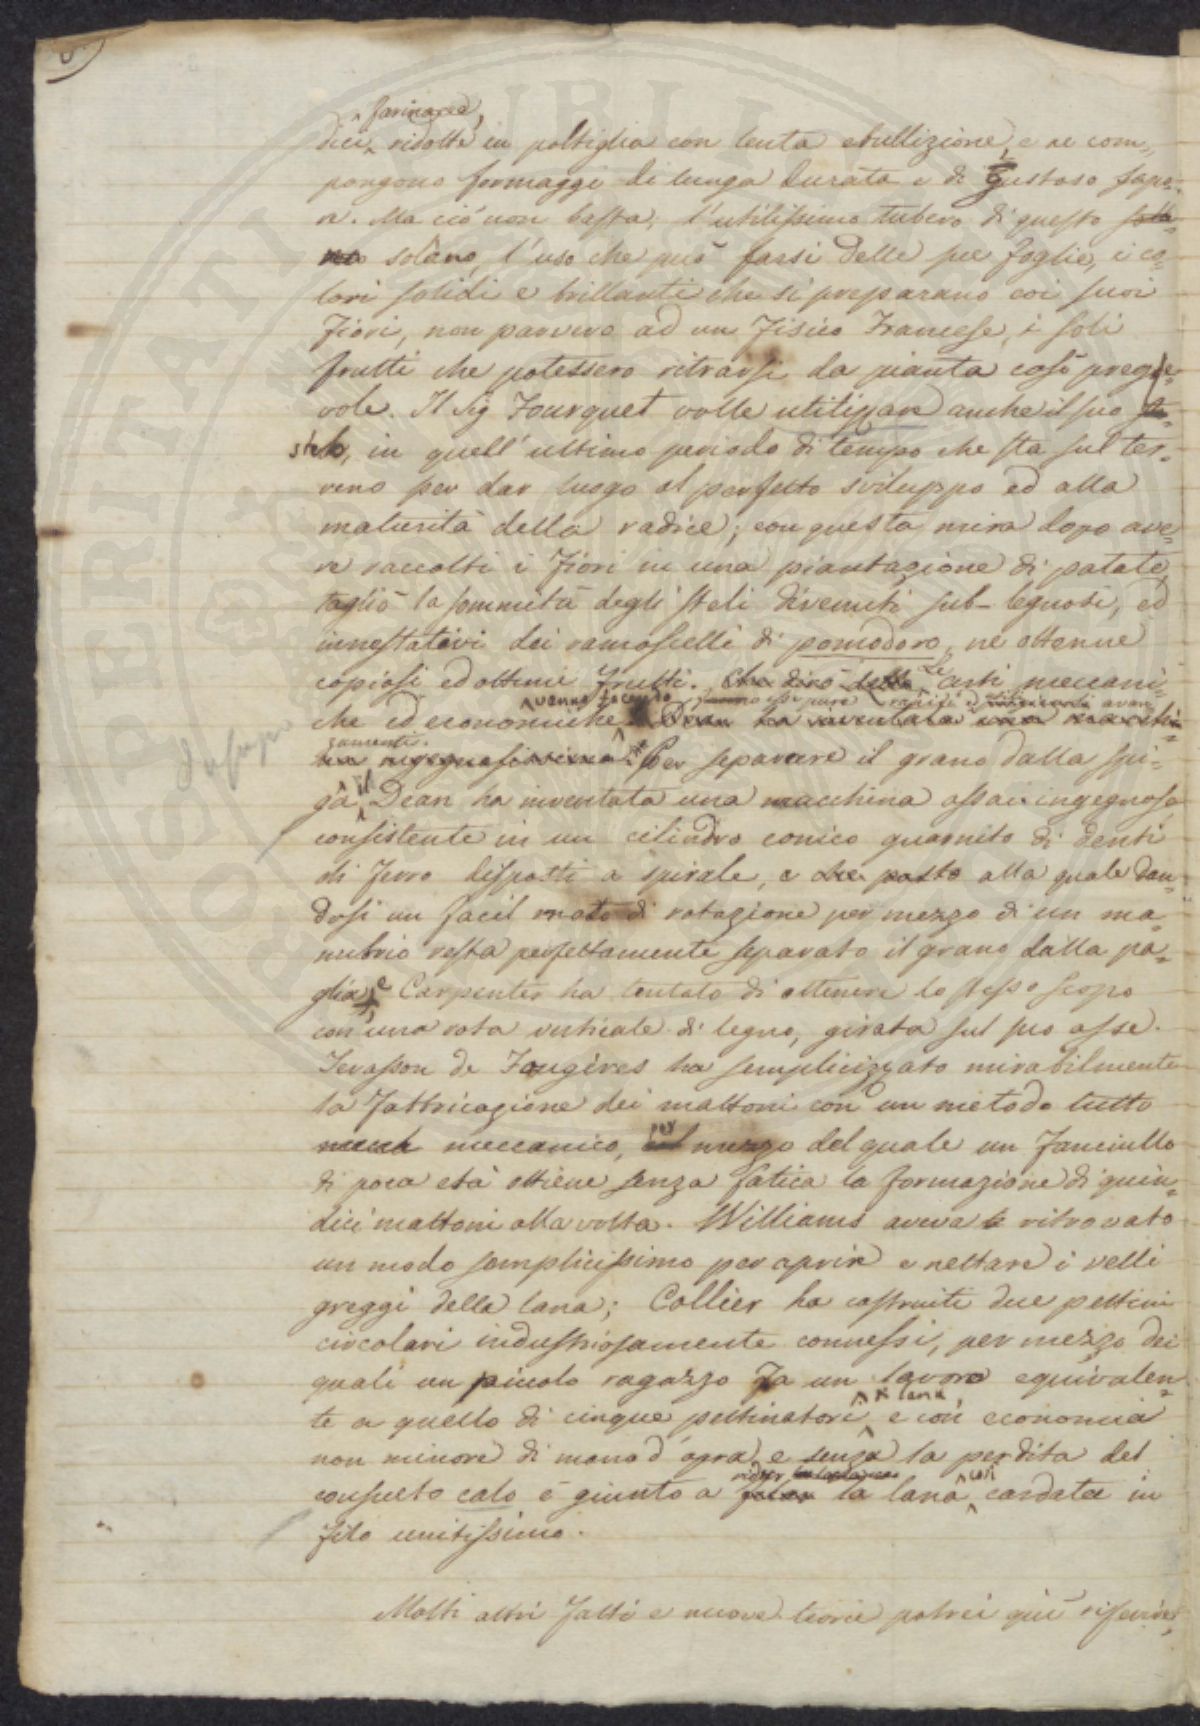 farinacee,
dici, ridotte in poltiglia con lenta ebullizione, e se com=
pongono formaggi di lunga durata e di gustoso sapo=
re. Ma ciò non basta, l'utilissimo tubero di questo sola=
no solano, l'uso che può farsi delle sue foglie, i co=
lori solidi e brillanti che si preparano coi suoi
fiori, non parvero ad un Fisico Francese, i soli
frutti che potessero ritrarsi da pianta così prege=
vole. Il Sig Fourquet volle utilizzare anche il suo ste=
stelo, in quell'ultimo periodo di tempo che sta sul ter=
reno per dar luogo al perfetto sviluppo ed alla
maturità della radice; con questa mira dopo ave=
re raccolti i fiori in una piantagione di patate,
tagliò la sommità degli steli divenuti sub-legnosi, ed
innestativi dei ramoscelli di pomodoro, ne ottenne
copiosi ed ottimi frutti. Che dirò delle Le arti meccani=
vanno facendo esse pure rapidi avan
che ed economiche Dean ha inventata una macchi=
zamenti.
na ingegnosissima. Per separare il grano dalla spi=
ga il Dean ha inventata una macchina assai ingegnosa
consistente in un cilindro conico guarnito di denti
di ferro disposti a spirale, e che posto alla quale dan=
dosi un facil moto di rotazione per mezzo di un ma=
nubrio resta perfettamente separato il grano dalla pa=
glia, e Carpenter ha tentato di ottenere lo stesso scopo
con una rota verticale di legno, girata sul suo asse.
Levasson de Fougères ha semplicizzato mirabilmente
la fabbricazione dei mattoni con un metodo tutto
mecch meccanico, per mezzo del quale un fanciullo
di poca età ottiene senza fatica la formazione di quin=
dici mattoni alla volta. Williams aveva ritrovato
un modo semplicissimo per aprire e nettare i velli
greggi della lana; Collier ha costruiti due pettini
circolari industriosamente connessi, per mezzo dei
quali un piccolo ragazzo fa un lavoro equivalen=
te a quello di cinque pettinatori di lana, e con economia
non minore di mano d'opra, e senza la perdita del
consueto calo è giunto a ridur la lana così cardata in
filo unitissimo.
Molti altri fatti e nuove teorie potrei quì riferire,